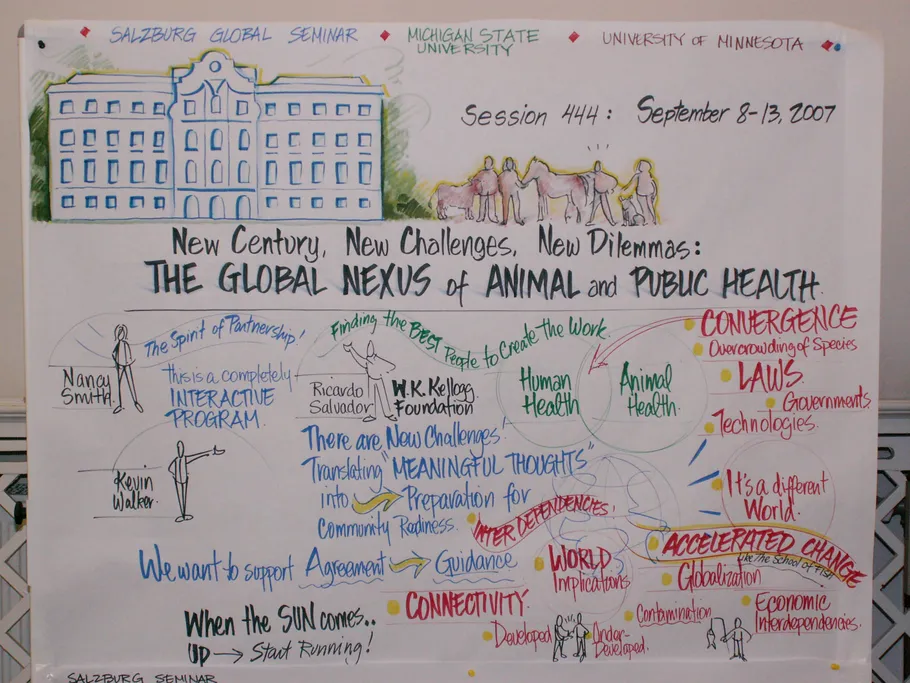 SALZBURG GLOBAL SEMINAR
MICHIGAN STATE
UNIVERSITY
UNIVERSITY OF MINNESOTA
Session 444: September 8-13, 2007
New Century, New Challenges, New Dilemmas:
THE GLOBAL NEXUS of ANIMAL and PUBLIC HEALTH
Nancy
Smith
The Spirit of Partnership!
This is a completely
INTERACTIVE
PROGRAM.
Kevin
Walker
Finding the BEST People to Create the Work.
Ricardo
Salvador
W.K. Kellogg
Foundation
There are New Challenges!
Translating "MEANINGFUL THOUGHTS"
into Preparation for
Community Readiness.
We want to support Agreement Guidance
When the SUN comes..
UP → Start Running!
Human
Health
Animal
Health.
CONVERGENCE
Overcrowding of Species
LAWS.
Governments
Technologies.
It's a different
World.
INTERDEPENDENCIES!
ACCELERATED CHANGE
Like The School of FISH
WORLD
Implications
Globalization
CONNECTIVITY.
Developed
Under-
Developed.
Contamination
Economic
Interdependencies.
SALZBURG SEMINAR